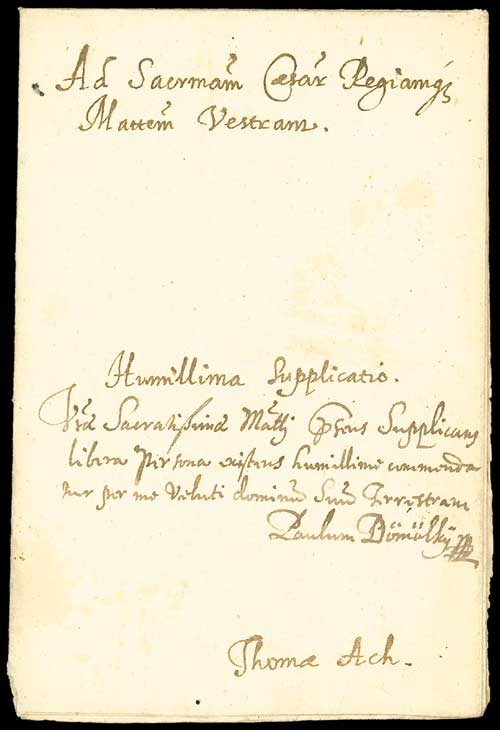 Ad Sacrmam̃ Cæsar Regiamq́;
Mattem̃ Vestram.
Humillima Supplicatio.
Vr̃æ Sacratissimæ Mãtti p̃sens Supplicans
libera Persona existens humillime commenda
tur per me Veluti dominũ Suũ Terrestrem
Paulum Dömölky
Thomæ Ach.